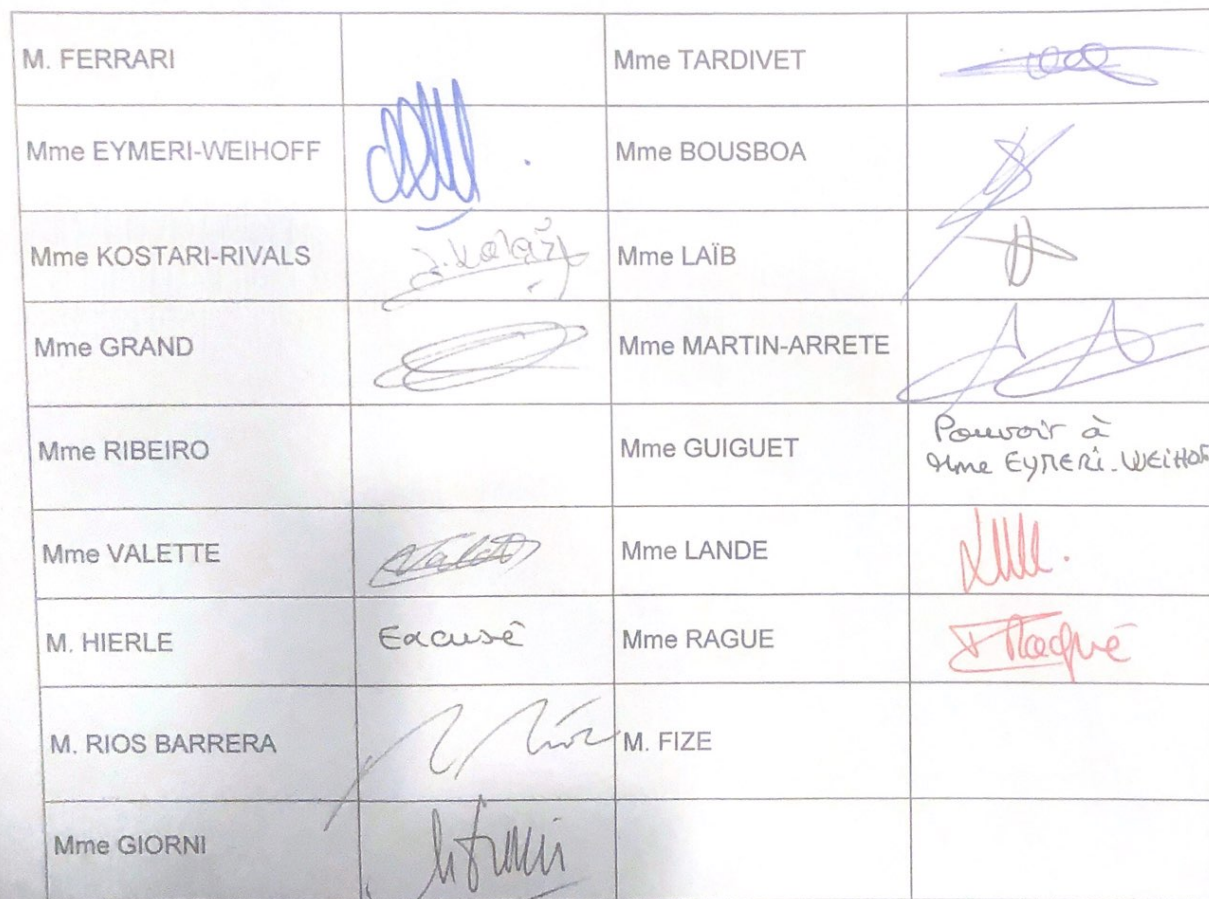 M. FERRARI
Mme TARDIVET
Mme EYMERI-WEIHOFF
Mme BOUSBOA
Mme KOSTARI-RIVALS
Mme LAÏB
Mme GRAND
Mme MARTIN-ARRETE
Mme RIBEIRO
Mme GUIGUET
Pouvoir à
Mme EYMERI-WEIHOF
Mme VALETTE
Mme LANDE
M. HIERLE
Excusé
Mme RAGUE
M. RIOS BARRERA
M. FIZE
Mme GIORNI